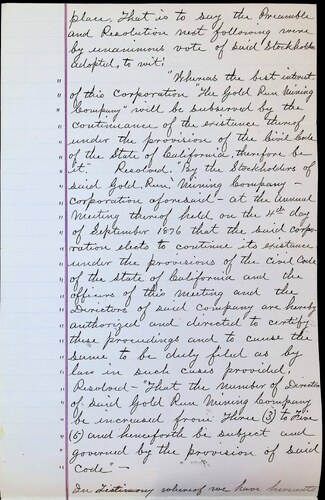 place, That is to say the Preamble
and Resolution next following were
by unanimous vote of said Stockholders
adopted, to wit:
" "Whereas the best interest
" of this Corporation "The Gold Run Mining
" Company" will be subserved by the
" continuance of the existance thereof
" under the provision of the Civil Code
" of the State of California, therefore be
" it. Resolved, By the Stockholders of
" said Gold Run Mining Company -
" corporation aforesaid - at the annual
" Meeting thereof held on the 4th day
" of September 1876 that the said corpo-
" ration elects to continue its existance
" under the provisions of the Civil Code
" of the State of California and the
" officers of this Meeting and the
" Directors of said Company are hereby
" authorized and directed to certify
" these proceedings and to cause the
" same to be duly filed as by
" law in such cases provided.
" Resolved - "That the number of Directors
" of said Gold Run Mining Company
" be increased from Three (3) to Five
" (5) and henceforth be subject and
" governed by the provision of said
" Code" -
In Testimony whereof we have hereunto